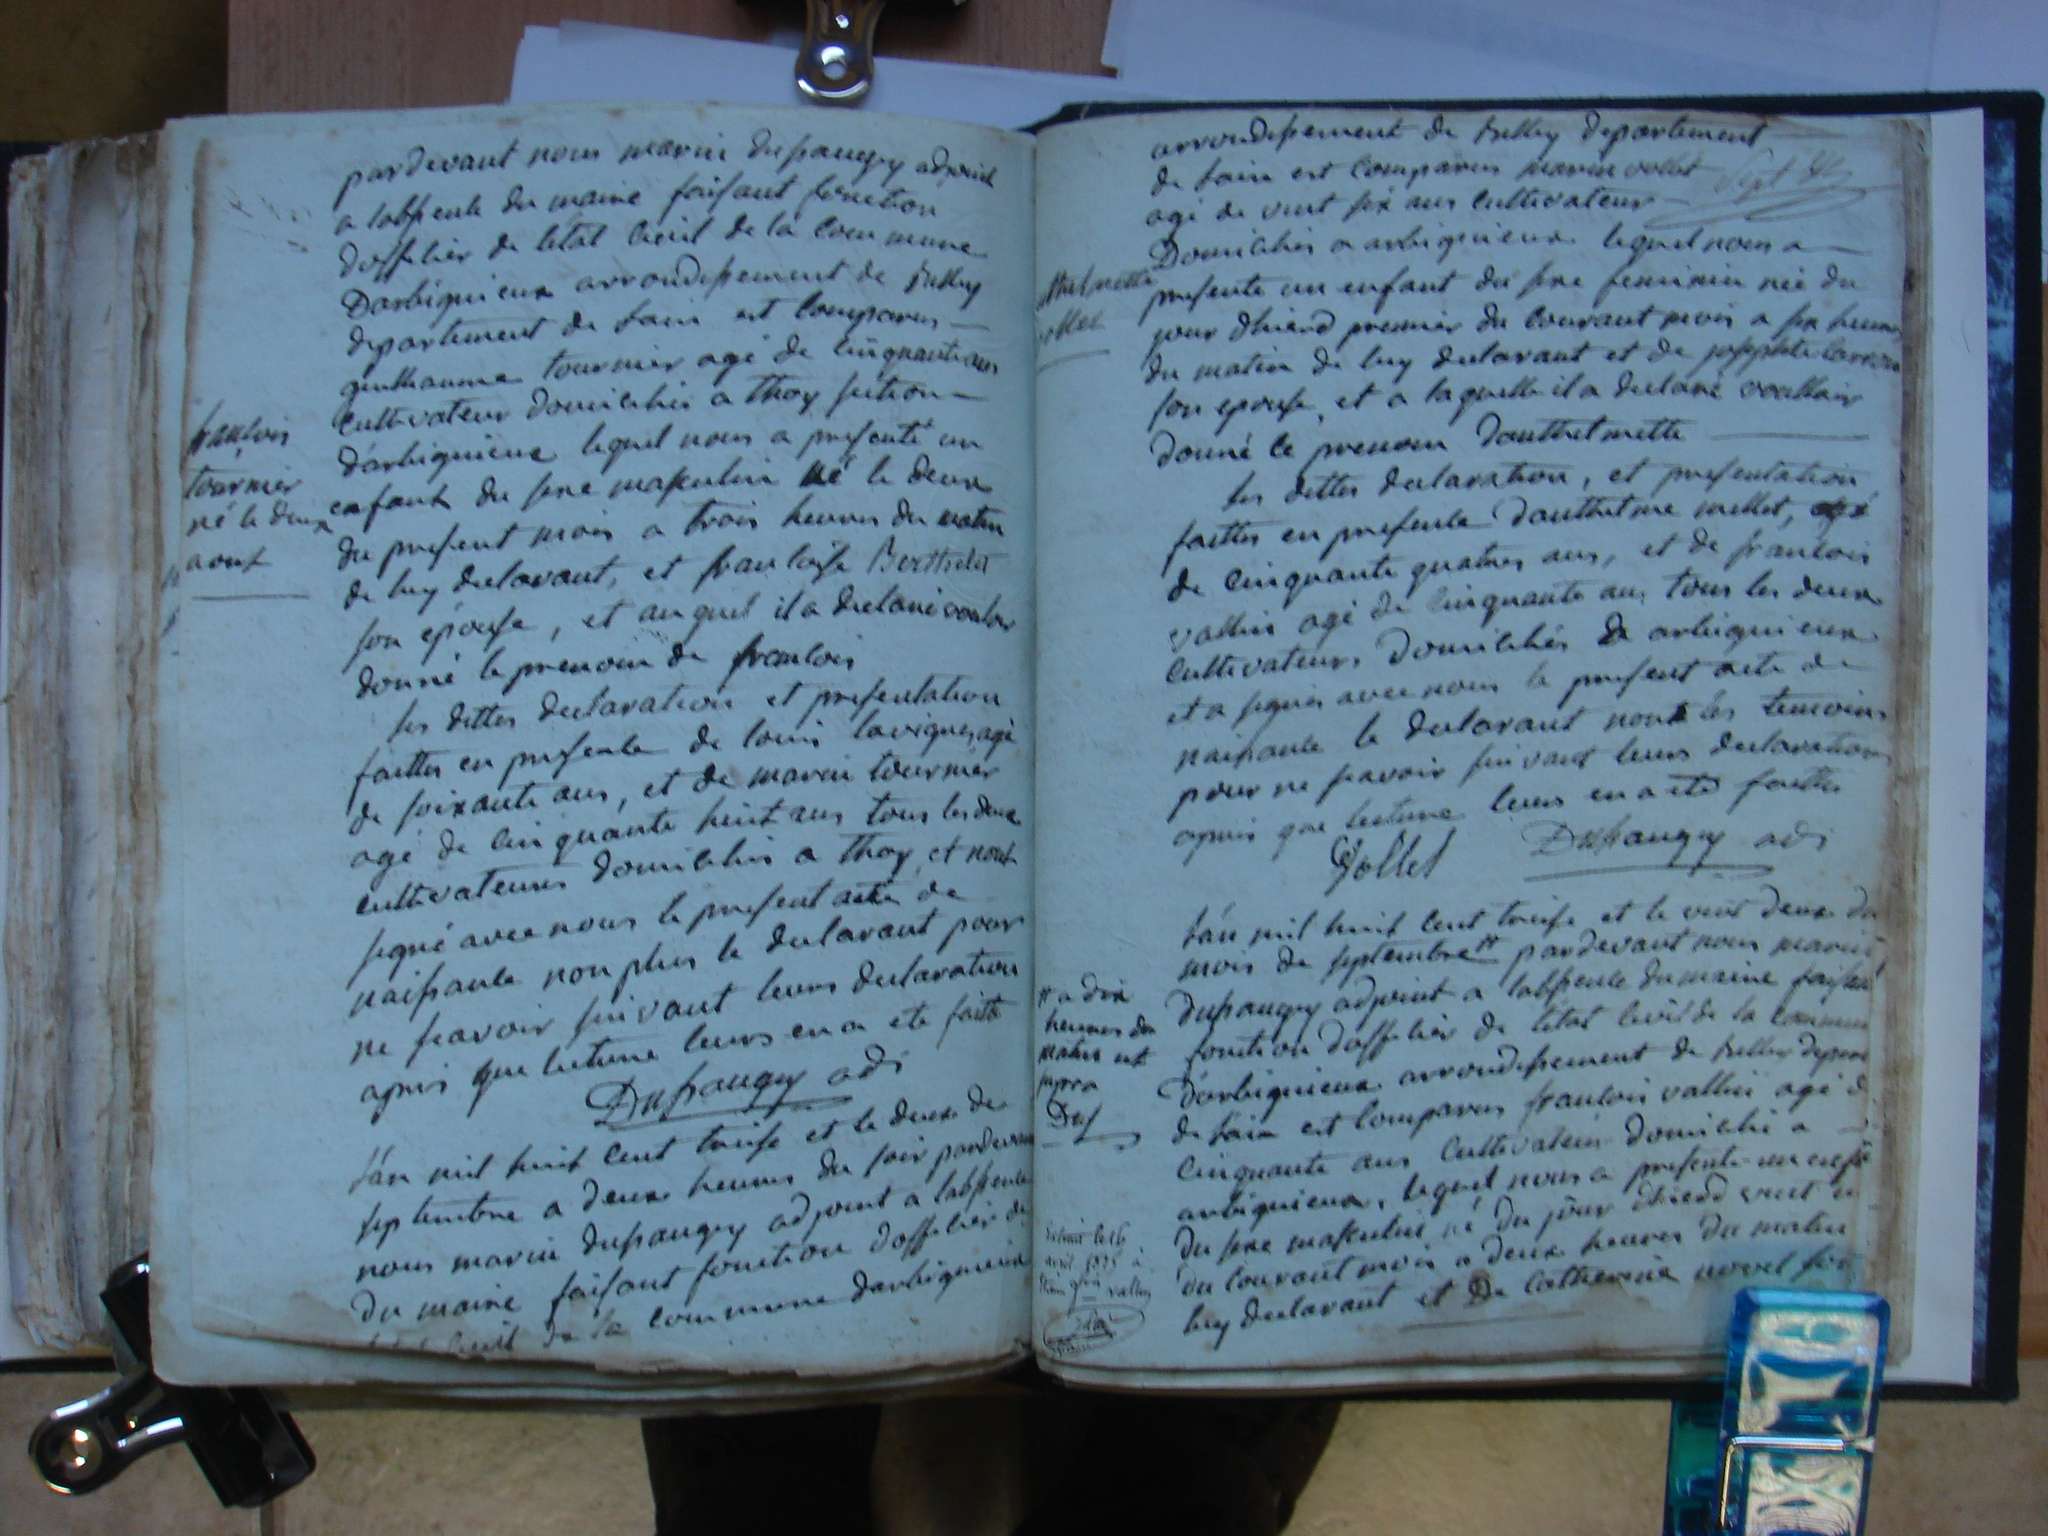 pardevant nous marin dupaugey adjoint
a labsence du maire faisant fonction
dofficier de létat civil de la commune
Darbiguieux arrondissement de Belley
departement de lain est comparus
guilliaume tournier agé de cinquante ans
cultivateur domicilié a thoy section
darbiguieux lequel nous a presenté un
enfant du sexe masculin né le deux
du present mois a trois heures du matin
de luy declarant, et francoise Berthelet
son epouse, et auquel il a declaré vouloir
donné le prenom de francois
les dittes declaration et presentation
faittes en presence de louis lavigne, agé
de soixante ans, et de marin tournier
agé de cinquante huit ans tous les deux
cultivateurs domicilies a thoy, et nont
signé avec nous le present acte de
naissance non plus le declarant pour
ne scavoir suivant leurs declaration
apres que lecture leurs en a eté faitte
Dupaugey adj
lán mil huit cent treise et le deux de
septembre a deux heures du soir pardevant
nous marin dupaugey adjoint a labsence
du maire faisant fonction dofficier de
létat civil de la commune darbiguieux
francois
tournier
né le deux
aout
arrondissement de belley departement
de lain est comparus marin vollet
agé de vint six ans cultivateur
Domicilies a arbiguieux lequel nous a
presente un enfant du sexe feminin née du
jour dhierd premier du courant mois a six heures
du matin de luy declarant et de josephte
son epouse, et a laquelle il a declaré voulloir
donné le prenom danthelmette
les dittes declaration, et presentation
faittes en presence danthelme mellet, agé
de cinquante quatres ans, et de francois
vallin agé de cinquante ans tous les deux
cultivateurs domicilies a arbiguieux
et a signés avec nous le present acte de
naissance le declarant nont les temoins
pour ne scavoir suivant leurs declarations
apres que lecture leurs en a eté faittes
Vollet Dupaugey adj
lán mil huit cent treise et le vint deux du
mois de septembre # pardevant nous marin
dupaugey adjoint a labsence du maire faisant
fonction dofficier de létat civil de la commune
darbiguieux arrondissement de belley depart
de lain est comparus francois vallin agé de
cinquante ans cultivateur domicilié a
arbiguieux, lequel nous a presente un enfant
du sexe masculin né du jour dhierd vint un
du courant mois a deux heures du matin
luy declarant et de catherine morel son
Sept
Anthelmette
vollet
# a dix
heures du
matin ut
supra
Dup